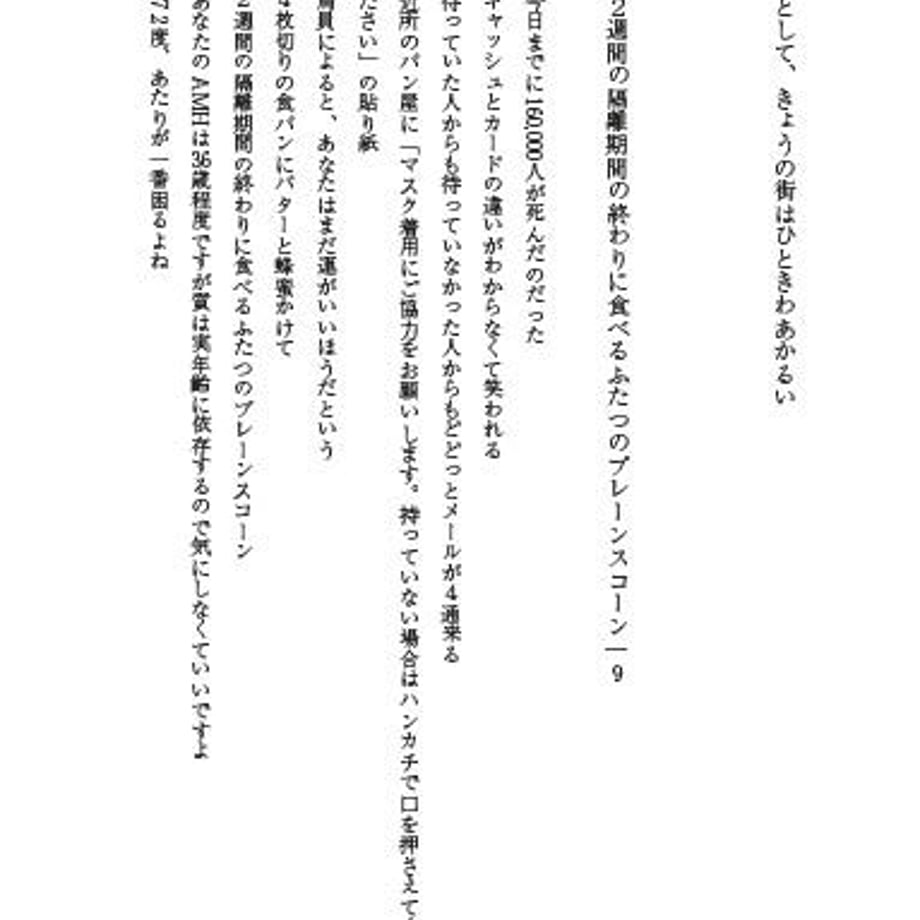 として、きょうの街はひときわあかるい
2週間の隔離期間の終わりに食べるふたつのプレーンスコーン―9
今日までに160,000人が死んだのだった
キャッシュとカードの違いがわからなくて笑われる
待っていた人からも待っていなかった人からもどどっとメールが4通来る
近所のパン屋に「マスク着用にご協力をお願いします。持っていない場合はハンカチで口を押さえて
ださい」の貼り紙
員によると、あなたはまだ運がいいほうだという
4枚切りの食パンにバターと蜂蜜かけて
2週間の隔離期間の終わりに食べるふたつのプレーンスコーン
あなたのAMHは36歳程度ですが質は実年齢に依存するので気にしなくていいです
72度、あたりが一番困るよね